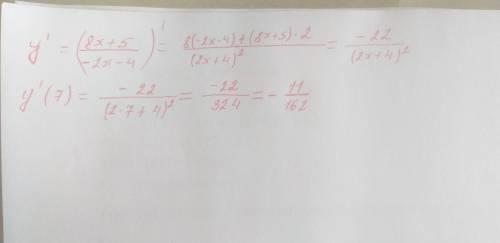 y' = (8x+5 / -2x-4)' = 8(-2x-4)+(8x+5)·2 / (2x+4)² = -22 / (2x+4)²
y'(7) = -22 / (2·7+4)² = -22 / 324 = - 11 / 162